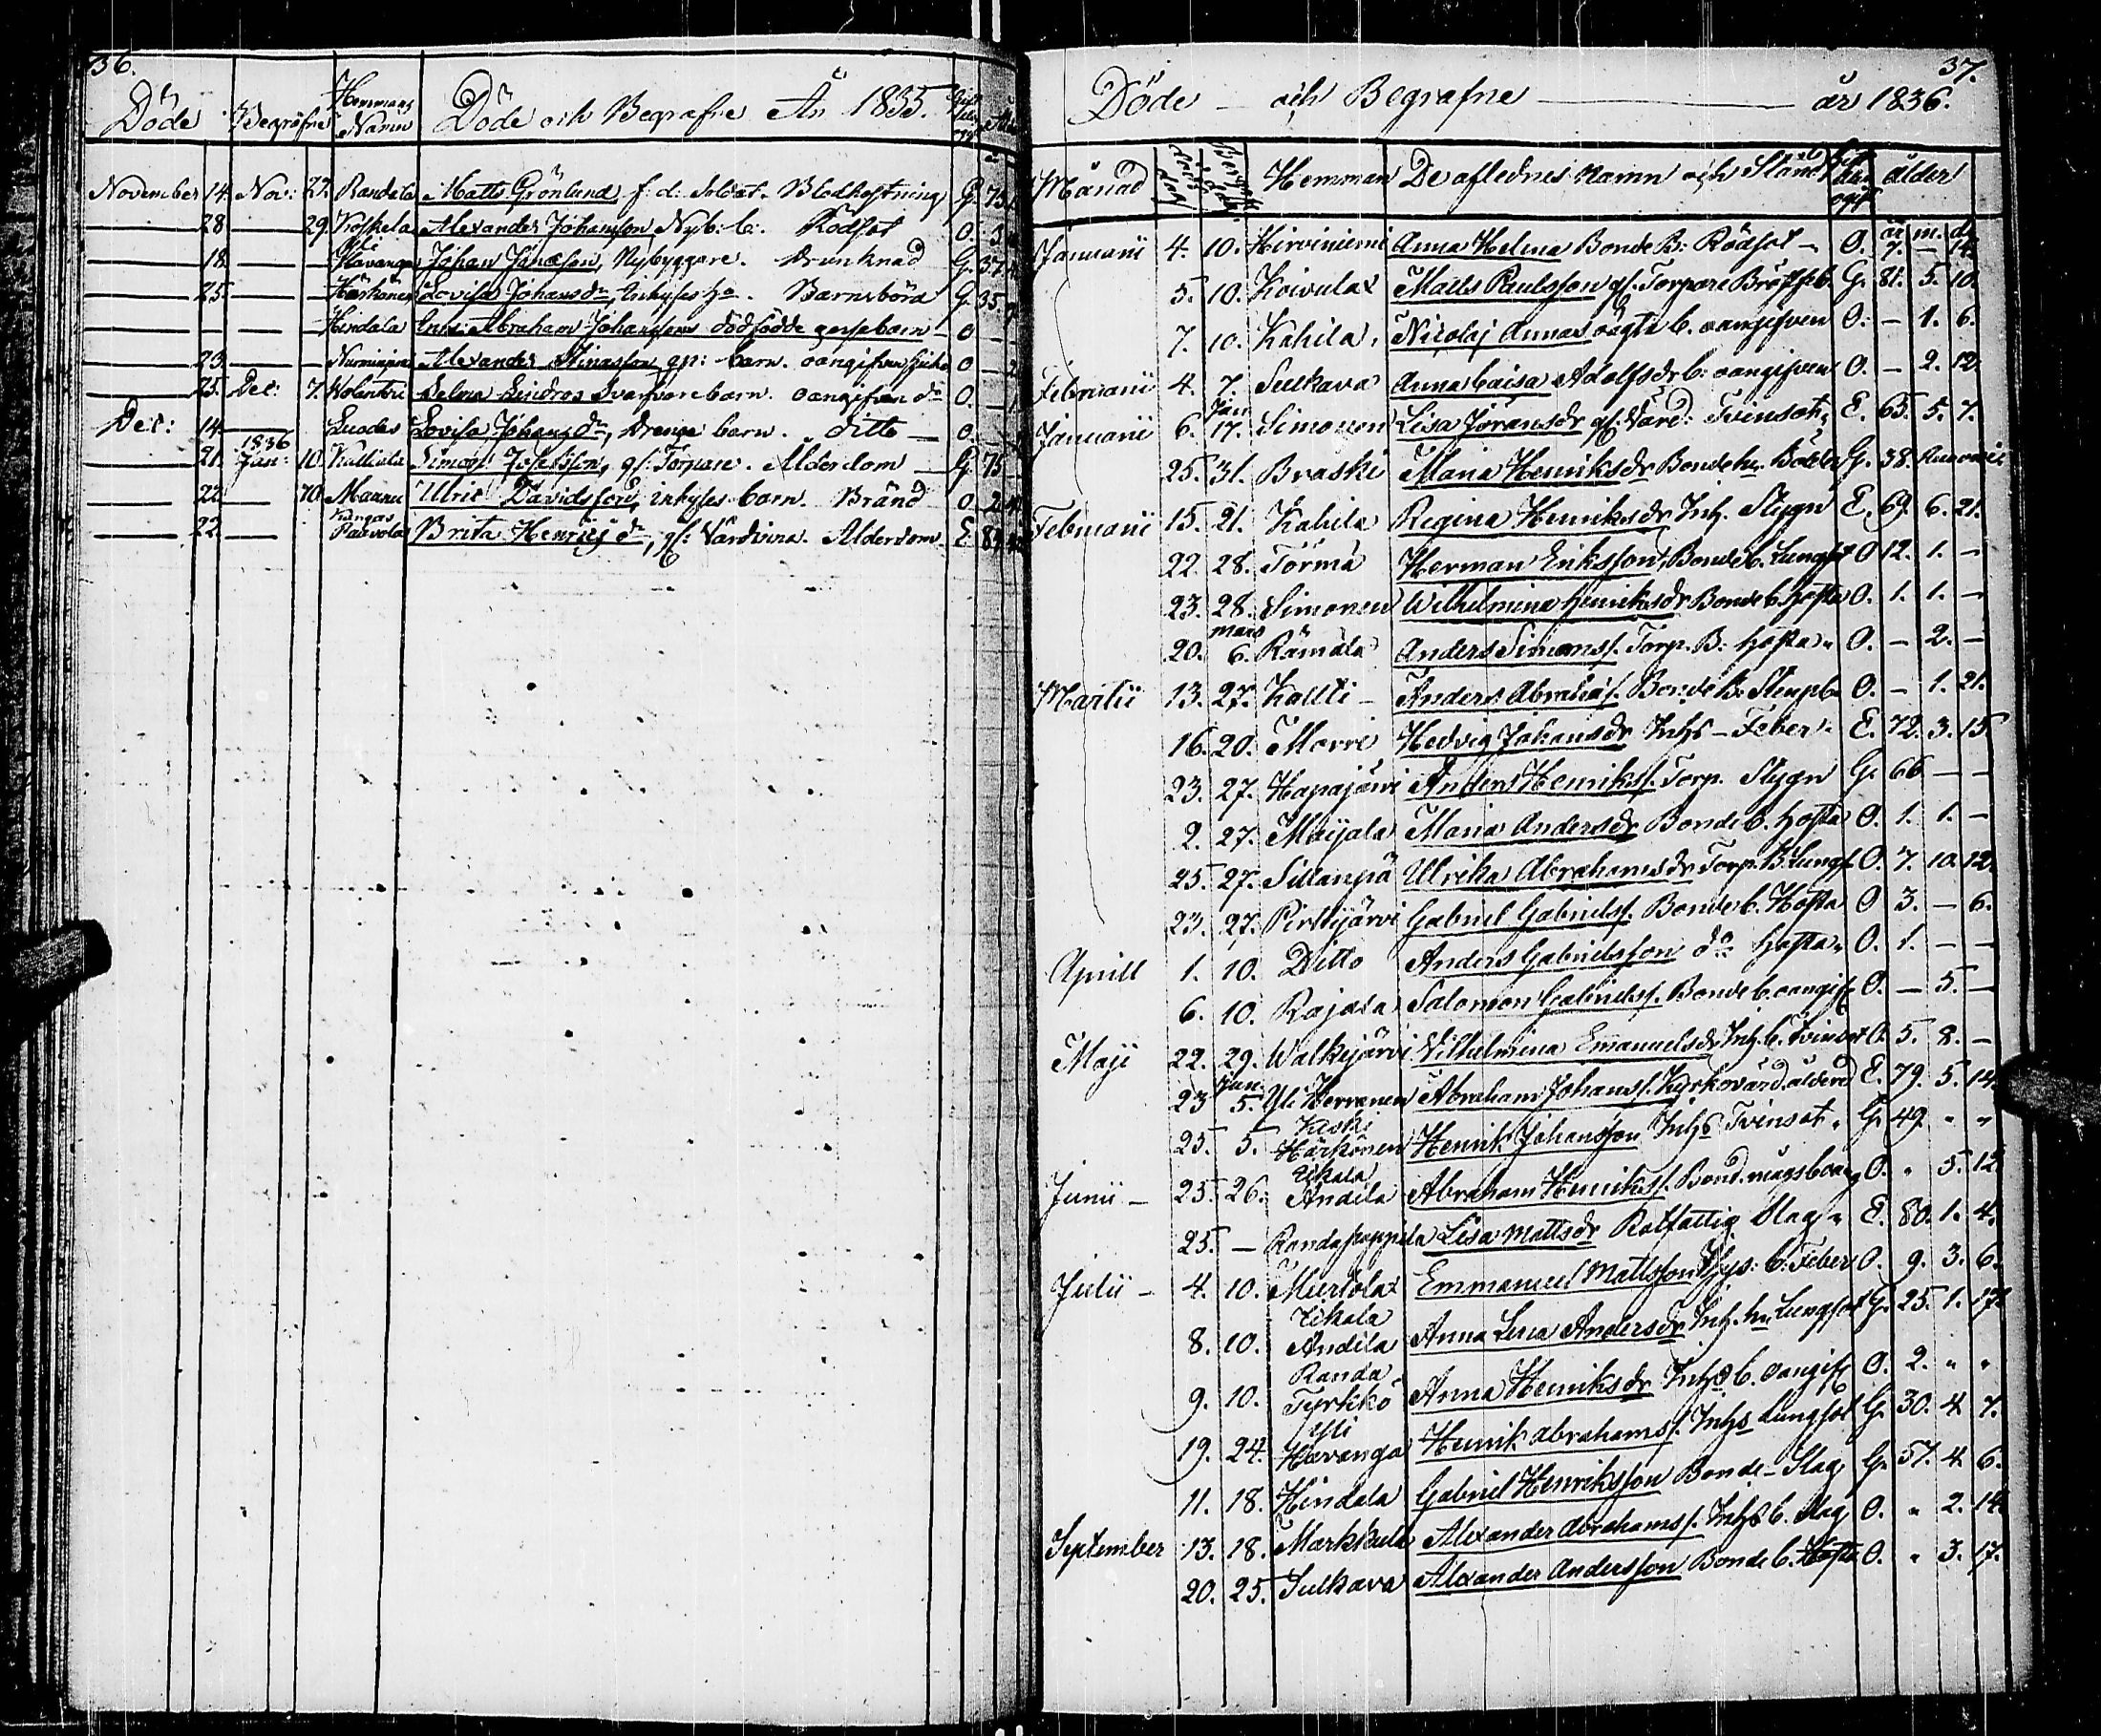 36.
Döde Begrafne Hemmans Namn Döde och Begrafne År 1835.
November 14. Nov: 22. Randala Matts Grönlund f: d: Soldat. Blodhostning G. 75
28 29. Koskela Alexander Johansson, Nyb: b: Rödsot O. 3
18. Yli Havanga Johan Johansson, Nybyggare. Drunknad G. 37.
25. Härkönen Lovisa Johansdr, Inhyses hu. Barnsbörd G. 35.
Hendala Inh: Abraham Johanssons dödfödde gossebarn O
23. Alexander Stinasson, barn. oangifven sjukd O
25. Dec: 7. Wolonteri Selma barn. oangifven do O.
Dec: 14. Luodes Lovisa Johansdr, Drengs barn. ditto O.
21. 1836 Jan: 10. Kalliala Simon Josefsson, gl: Torpare. Ålderdom G 75
22. 10. Maunu Ulric Davidsson, inhyses barn. Bränd O. 2
22. Kangas Paavola Brita Henricsdr, gl: Värdinna. Ålderdom. E. 84
37.
Döde och Begrafne år 1836.
Månad Döds dag Begrafn: dag. Hemman De aflednes namn och Stånd Gift eller ogift ålder
år m. d.
Januarii 4. 10. Hirviniemi Anna Helena Bonde B: Rödsot O. 7. — 14.
5. 10. Koivula Matts Paulsson gl. Torpare Bröstsb. G. 81. 5. 10.
7. 10. Kahila Nicolaj Annas oägta b. oangifven O. — 1. 6.
Februarii 4. 7. Sulkava Anna Caisa Adolfsdr b: oangifven O. — 2. 12.
Januarii 6. Jan 17. Simonen Lisa Jöransdr gl. Värd: Tvinsot. E. 65. 5. 7.
25. 31. Braski Maria Henriksdr Bonde hu. G. 38.
Februarii 15. 21. Kahila Regina Henriksdr Inh. Stygn E. 69. 6. 21.
22. 28. Törmä Herman Eriksson, Bonde b. Lungsot O 12. 1. —
23. 28. Simonen Wilhelmina Henriksdr Bonde b. Hosta O. 1. 1. —
20. mars 6. Rämälä Anders Simonss. Torp. B. Hosta O. — 2. —
Martii 13. 27. Kallti Anders Abrahas. Bonde B. O. — 1. 21.
16. 20. Morri Hedvig Johansdr Inhs — Feber E. 72. 3. 15
23. 27. Hapajärvi Anders Henrikss. Torp. Stygn G. 66 — —
2. 27. Maijala Maria Andersdr Bonde b. Hosta O. 1. 1. —
25. 27. Sillanpä Ulrika Abrahamsdr Torp. B. Lungs. O. 7. 10. 12.
23. 27. Pirttijärvi Gabriel Gabrielss. Bonde b. Hosta O 3. — 6.
Aprill 1. 10. Ditto Anders Gabrielsson do Hosta O. 1. — —
6. 10. Rajala Salomon Gabrielss. Bonde b. oangif O. — 5. —
Maji 22. 29. Walkejärvi Vilhelmina Emanuelsdr Inh. b. Tvinsot O. 5. 8. —
23 Jun. 5. Yli Verronen Abraham Johanss. Kyrkovärd. ålderd E. 79. 5. 14.
25. 5. Kaski Härkönen Henrik Johansson Inhs Tvinsot. G. 49. " "
Junii — 25. 26. Ukala Andila Abraham Henrikss. Bond. mågs b. oang O. " 5. 12
25. — Randapappila Lisa Mattsdr Rotfattig Slag " E. 80. 1. 4.
Julii — 4. 10. Murtola Emmanuel Mattsson Hys: b: Feber O. 9. 3. 6.
8. 10. Ukala Andila Anna Lena Andersdr Inh. hu. Lungsot G. 25. 1. 17.
9. 10. Randa Tyrkkö Anna Henriksdr Inhs b. oangif O. 2. " "
19. 24. Yli Havanga Henrik Abrahamss. Inhs Lungsot G. 30. 4. 7.
11. 18. Hindala Gabriel Henriksson Bonde — Slag G. 57. 4. 6.
September 13. 18. Markkula Alexander Abrahamss. Inhs b. Slag O. " 2. 14.
20. 25. Sulkava Alexander Andersson Bonde b. Hosta O. " 3. 17.